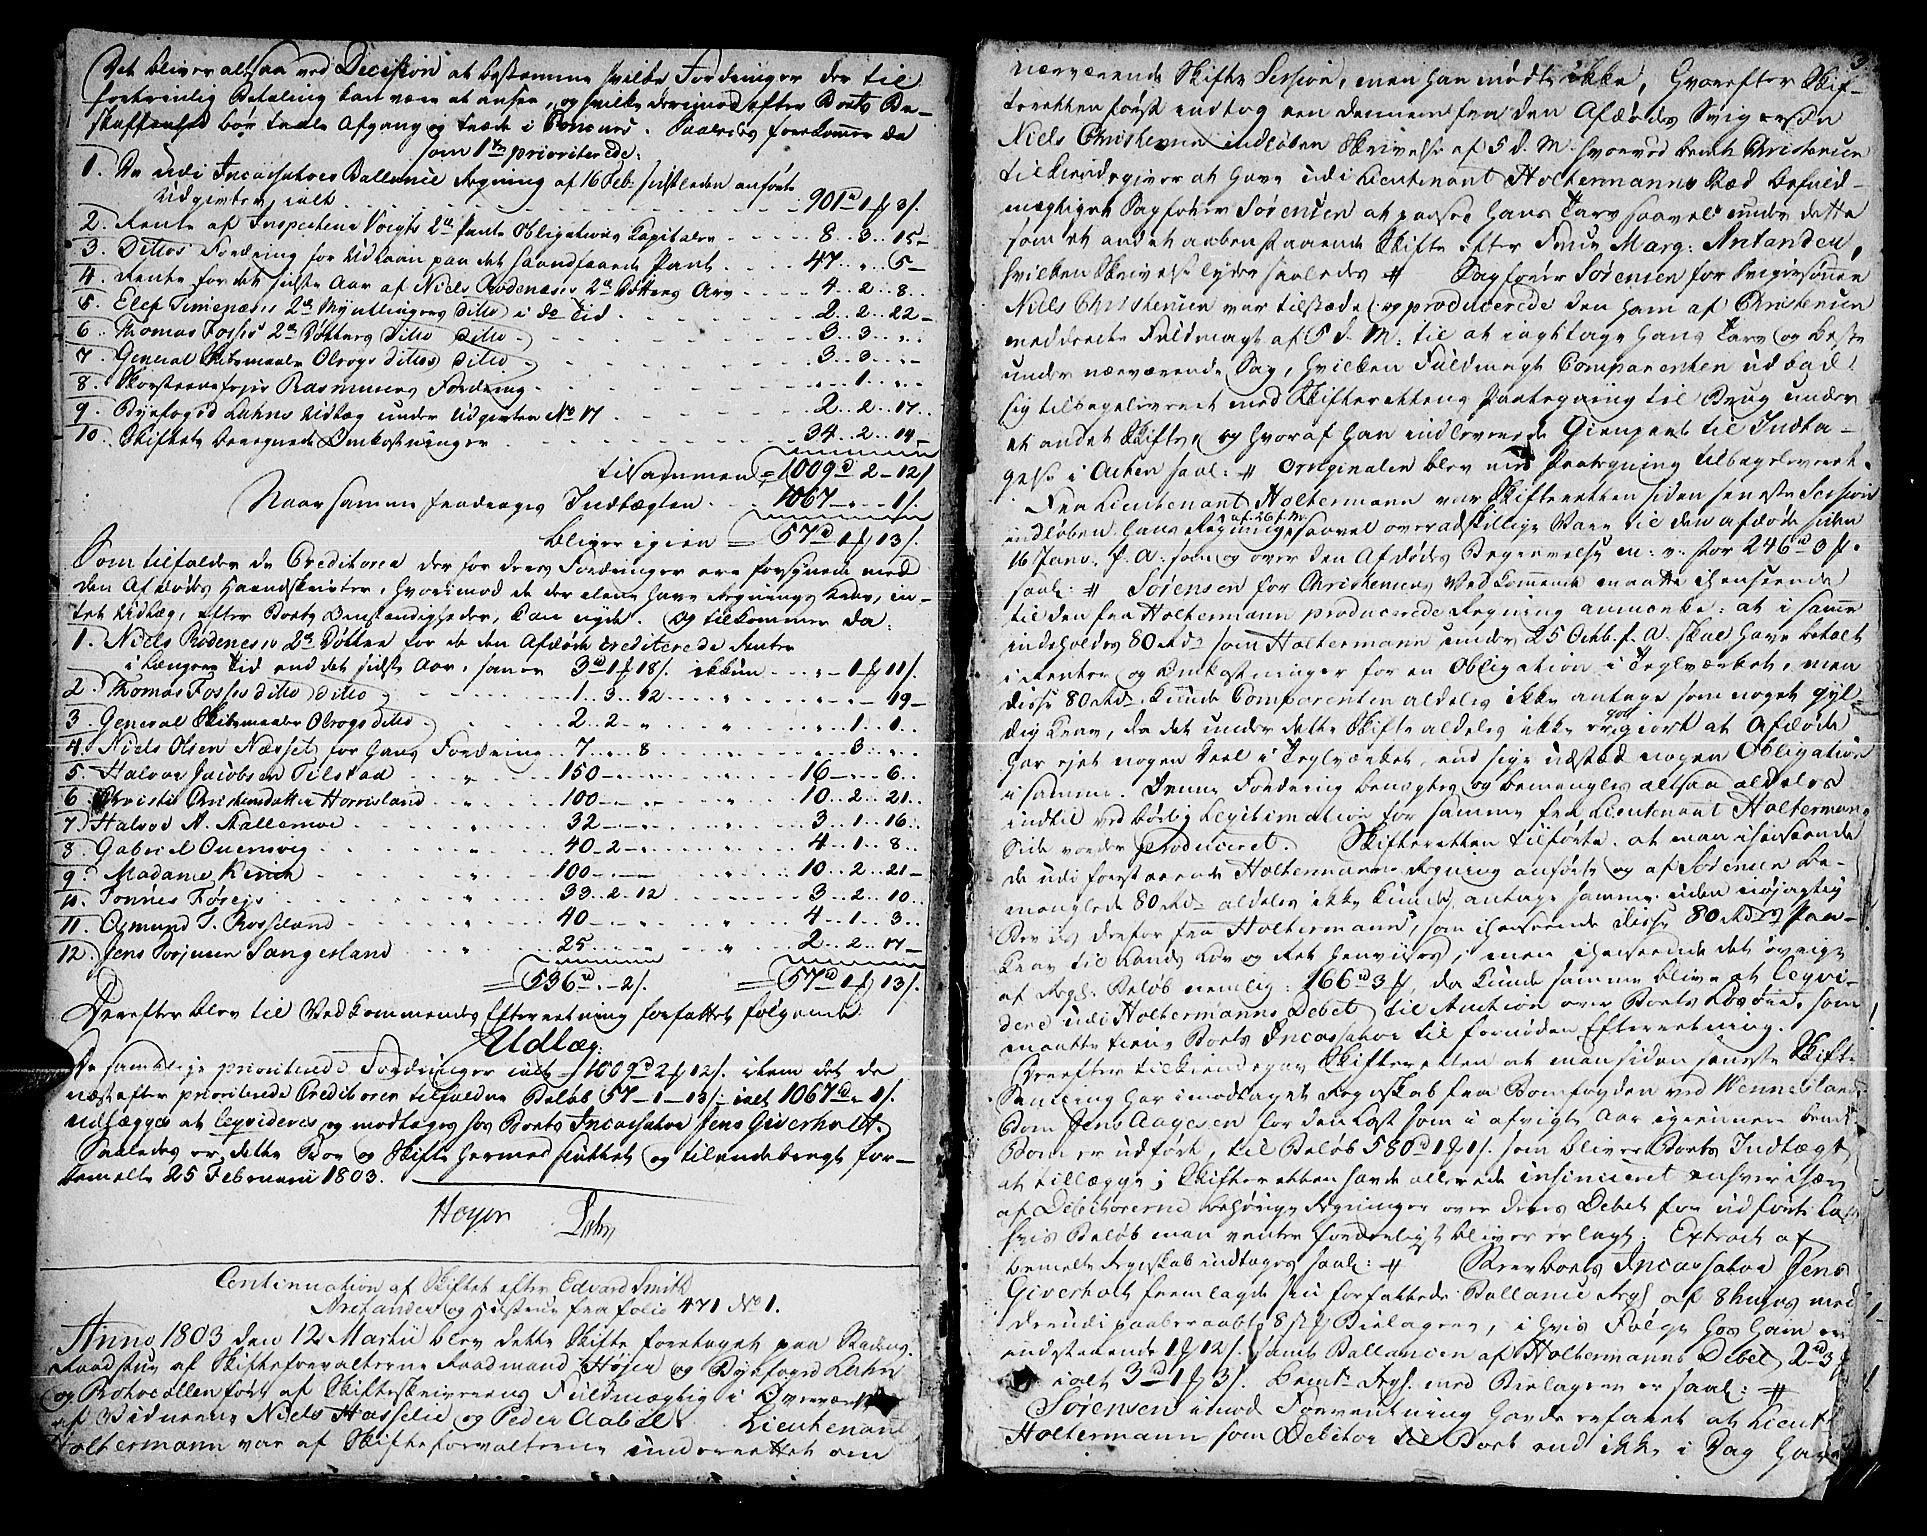 Det bliver altsaa ved Decision at bestemme hvilke Fordringer der til
fortrinlig Betaling kan være at ansee, og hvilke derimod efter Boets Be-
skaffenhed bør taale Afgang og træde i Concurs. Saaledes forekommer da
som 1te prioriterede:
1. De udi Incassators Ballance Regning af 16 Feb. sidstleden anførte
Udgivter, ialt 901d 1 f 3/.
2. Rente af Inspecteur Voigts 2de Pante Obligations Kapitaler 8.. 3.. 15-
3. Dittos Fordring for Udlaan paa det haandfaaede Pant 47. „. 5-
4. Rente for det sidste Aar af Niels Rødenæses 2de Døttres Arv 4.. 2.. 8..
5. Elef Timenæses 2de Myndtlinges ditto i do Tid 2.. 2.. 22-
6. Thomas Fosses 2de Døttres ditto ditto 3.. 3.. „..
7. General Krigsmaaler Olrogs dittos ditto 3.. 3.. „-
8. Skorsteensfeyer Rasmuses Fordring „.. 1.. „..
9. Byefoged Lahns Udlæg under Udgivten No 17 2.. 2.. 17..
10. Skiftets beregnede Omkostninger 34.. 2.. 14-
tilsammen = 1009d 2-12/
Naar samme fradrages Indtægten 1067.. „. 1/.
bliver igien = 57d 1 f 13/.
Som tilfalder de Creditorer der for deres Fordringer ere forsynede med
den Afdødes Haandskrivter, hvorimod de der alene have Regnings Krav, in-
tet Udlæg, efter Boets Omstændigheder, kan nyde. Og tilkommer da:
1. Niels Rødenæses 2de Døttre for de den Afdøde crediterede Renter
i længere Tid end det sidste Aar, saner 3d 1 f 18/. ikkun „. 1 f 11/.
2. Thomas Fosses ditto ditto 1.. 3.. 12 „ „. „. 19-
3. General Krigsmaaler Olrogs ditto 2.. 2.. „ „ „. 1.. 1..
4. Niels Olsen Næsset for hans Fordring 7.. „. 8 „ „. 3.. „..
5. Halvor Jacobsen Tilstad „ 150-.. „. „ 16-.. 6..
6. Christi Christensdatter Horrisland „ 100-.. „. „ 10.. 2.. 21..
7. Halvor A. Aallemoe „ 32-.. „. „ 3.. 1.. 16..
8. Gabriel Quensvig „ 40-2-.. „ 4.. 1.. 8..
9. Madame Kirch „ 100-.. „ 10.. 2.. 21-
10. Tønnes Føreiø „ 33.. 2.. 12 „ 3.. 2.. 10..
11. Osmund T. Rosseland „ 40-.. „ 4.. 1.. 3..
12. Jens Torjusen Sangesland „ 25 „ 2.. 2.. 17-
= 536d.. - 2/. = 57d 1 f 13/.
Derefter blev til Vedkommendes Efterretning forfattet følgende
Udlæg:
De samtlige prioriterede Fordringer ialt 1009d 2 f 12/. item det de
næstefter prioriterede Creditorer tilfaldne Beløb 57-1-13/- ialt 1067d „ 1/.
udlægges at liqvideres og modtages hos Boets Incassator Jens Giverholt.
Saaledes er dette Boe og Skifte hermed sluttet og tilendebragt for-
bemelte 25 Februarii 1803.
Høyer Lahn
Continuation af Skiftet efter Edvard Smith
Arefander og Hustrue fra folio 471 No 1.
Anno 1803 den 12 Martii blev dette Skifte foretaget paa Stadens
Raadstue af Skifteforvalterne Raadmand Høyer og Byefoged Lahn
og Protocollen ført af Skifteskriverens Fuldmægtig i Overværelse
af Vidnerne Niels Hasselie og Peder Aabel. Lieutenant
Holtermann var af Skifteforvalterne underrettet om
3
nærværende Skifte Session, men han mødte ikke, hvorefter Skif-
teretten først indtog een dennem fra den Afdødes Svigersøn
Niels Christensen indløben Skrivelse af 5 d. M. hvorved bemte Christensen
tilkiendegiver at have udi Lieutenant Holtermanns Stæd befuld-
mægtiget Sagfører Sørensen at paasee hans Tarv saavel under dette
som et andet aabenstaaende Skifte efter Frue Marg: Arctander,
hvilken Skrivelse lyder saaledes # Sagfører Sørensen for Svigersønnen
Niels Christensen var tilstæde og producerede den ham af Christensen
meddeelte Fuldmagt af 5 d. M. til at iagttage hans Tarv og beste
under nærværende Sag, hvilken Fuldmagt Comparenten udbad
sig tilbageleveret med Skifterettens Paategning til Brug under
et andet Skifte, og hvoraf han indleverede Gienpart til Indta-
gelse i Acten saal: # Originalen blev med Paategning tilbageleveret.
Fra Lieutenant Holtermann var Skifteretten siden seneste Session
indløben hans Regning af 26 f. M. saavel over adskillige Vare til den afdøde siden
16 Janv. f. A. som og over den Afdødes Begravelse m: v: stor 246d 3 f.
saal: # Sørensen for Christensens Vedkommende maatte ihenseende
til den fra Holtermann producerede Regning anmærke: at i samme
indeholdes 80 Rd som Holtermann under 25 Octb. f. A. skal have betalt
i Renter og Omkostninger for en Obligation i Teglværket, men
disse 80 Rd kunde Comparenten aldeles ikke antage som noget gyl-
dig Krav, da det under dette Skifte aldeles ikke er godtgiort at Afdøde
har ejet nogen Deel i Teglværket, end sige udstæd nogen Obligation
i samme. Denne Fordring benægtes og bemengles altsaa aldeles
indtil ved børlig Legitimation for samme fra Lieutenant Holtermans
Side vorder produceret. Skifteretten tilførte, at man ihenseende
de udi foranstaaende Holtermanns Regning anførte og af Sørensen be-
menglede 80 Rd aldeles ikke kunde antage samme uden nøjagtig
Beviis derfor fra Holtermann, som ihenseende disse 80 Rds Paa-
krav til Lands Lov og Ret henvises, men ihenseende det øvrige
af Regs. Beløb nemlig: 166d 3 f, da kunde samme blive at liqvi-
dere udi Holtermanns Debet til Auction over Boets Løsøre, som
maatte tiene Boets Incassator til fornøden Efterretning.
Derefter tilkiendegav Skifteretten at man siden seneste Skifte
Samling har imodtaget Regnskab fra Bomfogden ved Wennesland
Bom Jens Aagesen for den Last som i afvigte Aar igiennem bemte
Bom er udført, til Beløb 580d 1 f 1/. som bliver Boets Indtægt
at tillægge; Skifteretten havde allerede insinueret enhver især
af Debitorerne behørige Regninger over deres Debet for udførte Last
hvis Beløb man venter forderligst bliver erlagt. Extract af
bemelte Regnskab indtages saal: # Boets Incassator Jens
Giverholt fremlagde sin forfattede Ballance Regs af 8 hujus med
derudi paaberaabte 8 st. Bielagene, i hvis Følge hos ham er
indestaaende 1 f 12/. samt Ballancen af Holtermanns Debet 2d 3 f
ialt 3d 1 f 3/. bemte Regs. med Bielagene er saal: #
Sørensen imod Forventning havde erfaret at Lieut
Holtermann som Debitor til Boet end ikke i Dag have